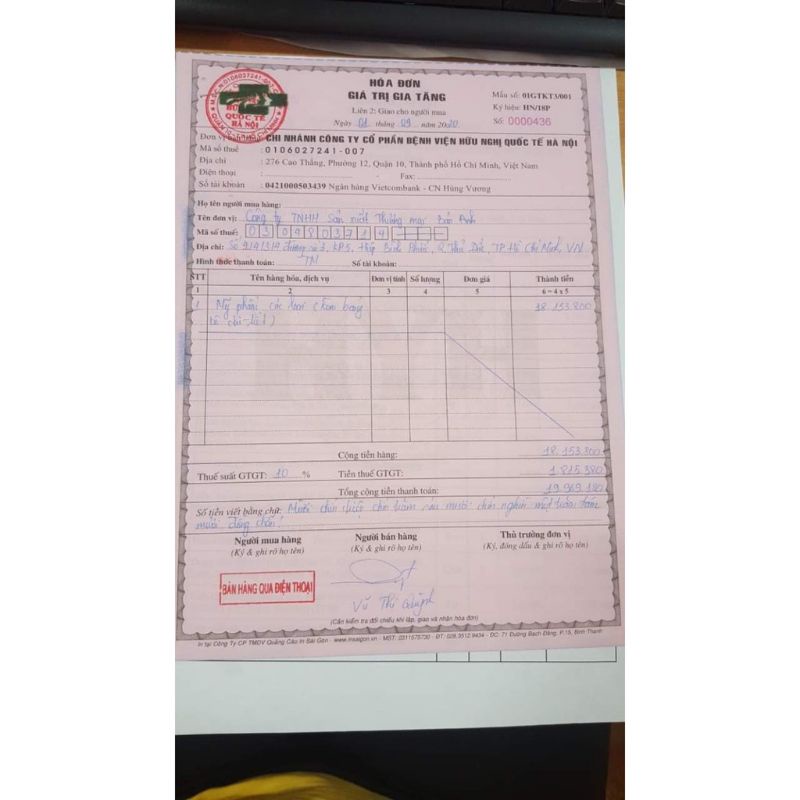 HÓA ĐƠN
GIÁ TRỊ GIA TĂNG
Liên 2: Giao cho người mua
Ngày 01 tháng 09 năm 2020
Mẫu số: 01GTKT3/001
Ký hiệu: HN/18P
Số: 0000436
QUỐC TẾ
HÀ NỘI
Đơn vị bán hàng: CHI NHÁNH CÔNG TY CỔ PHẦN BỆNH VIỆN HỮU NGHỊ QUỐC TẾ HÀ NỘI
Mã số thuế : 0106027241-007
Địa chỉ : 276 Cao Thắng, Phường 12, Quận 10, Thành phố Hồ Chí Minh, Việt Nam
Điện thoại : - Fax:
Số tài khoản : 0421000503439 Ngân hàng Vietcombank - CN Hùng Vương
Họ tên người mua hàng:
Tên đơn vị: Công ty TNHH Sản xuất Thương mại Bảo Anh
Mã số thuế: 0309803714
Địa chỉ: Số 9/4 đường số 3, KP5, Hiệp Bình Phước, Q Thủ Đức, TP Hồ Chí Minh, VN
Hình thức thanh toán: TM Số tài khoản:
STT Tên hàng hóa, dịch vụ Đơn vị tính Số lượng Đơn giá Thành tiền
1 2 3 4 5 6 = 4 x 5
1 Mỹ phẩm các loại (kèm bảng 18.153.800
kê chi tiết)
Cộng tiền hàng: 18.153.800
Thuế suất GTGT: 10 % Tiền thuế GTGT: 1.815.380
Tổng cộng tiền thanh toán: 19.969.180
Số tiền viết bằng chữ: Mười chín triệu chín trăm sáu mươi chín nghìn một trăm tám
mươi đồng chẵn!
Người mua hàng Người bán hàng Thủ trưởng đơn vị
(Ký & ghi rõ họ tên) (Ký & ghi rõ họ tên) (Ký, đóng dấu & ghi rõ họ tên)
BÁN HÀNG QUA ĐIỆN THOẠI
Vũ Thị Quỳnh
(Cần kiểm tra đối chiếu khi lập, giao và nhận hóa đơn)
In tại Công Ty CP TMDV Quảng Cáo In Sài Gòn - www.insaigon.vn - MST: 0311575730 - ĐT: 028.3512.9434 - ĐC: 71 Đường Bạch Đằng, P.15, Bình Thạnh